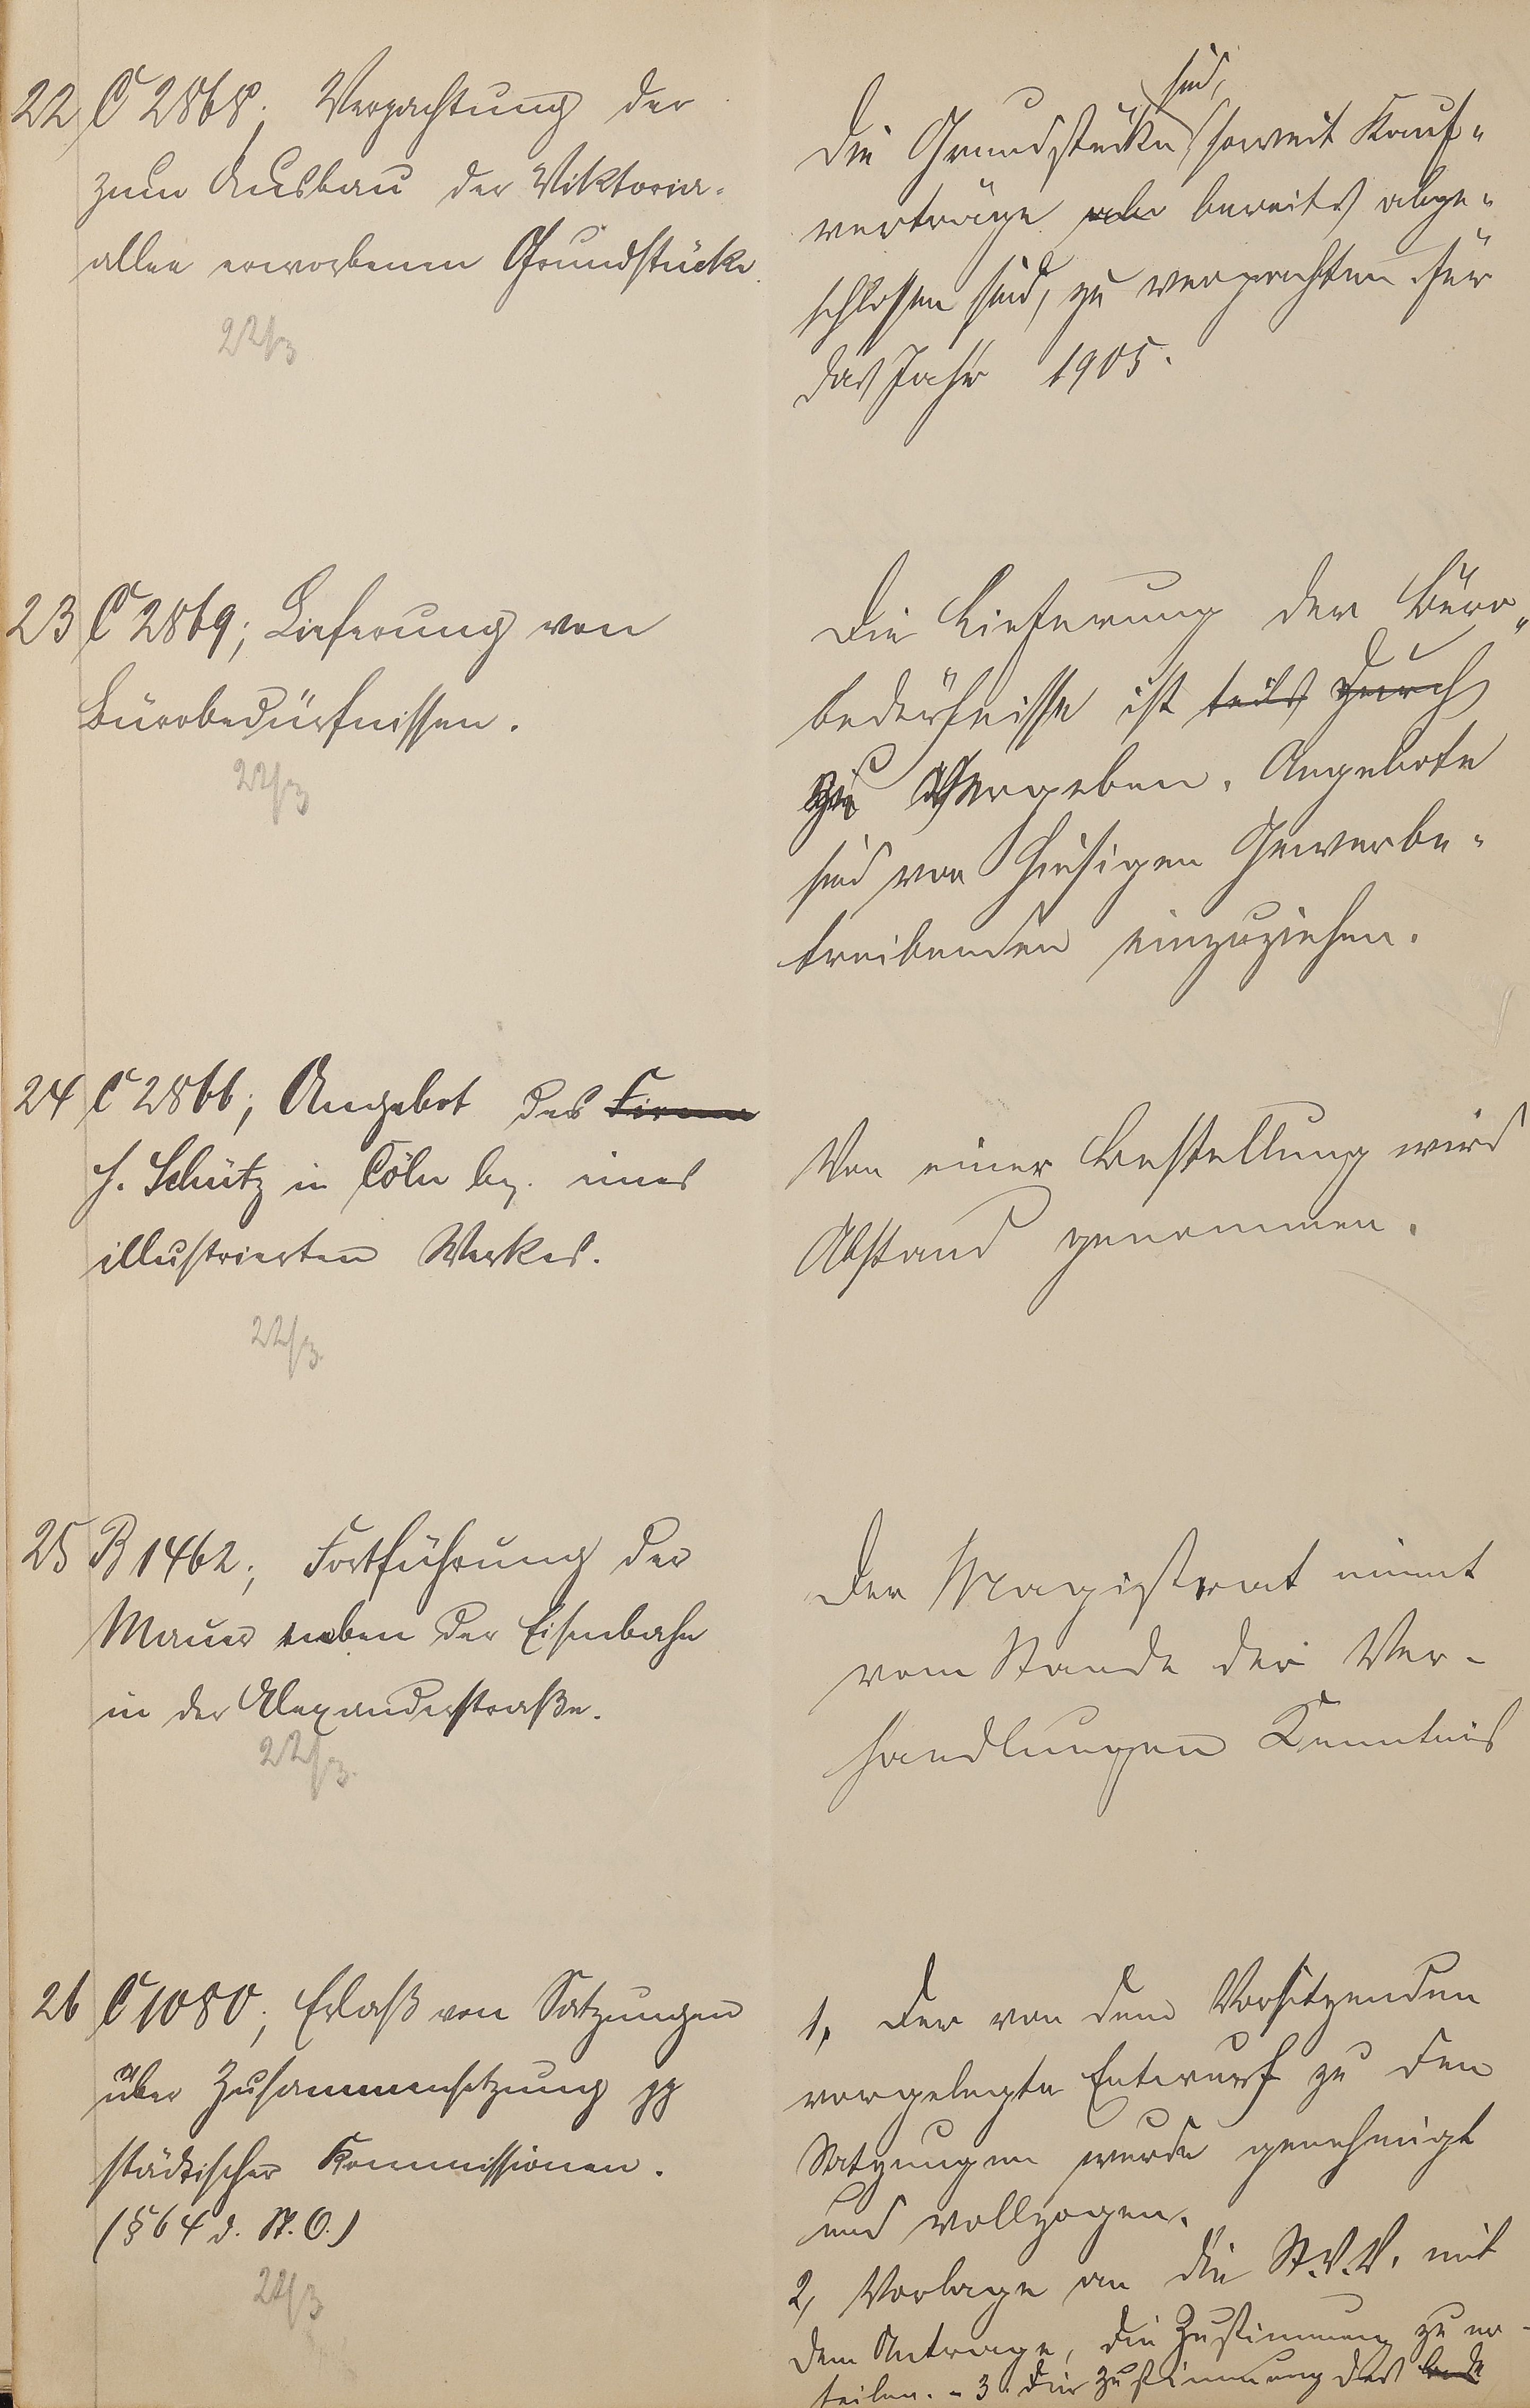 22 C 2868; Verpachtung der
zum Ausbau der Viktoria-
allee erworbenen Grundstücke.
22/3
sind,
Die Grundstücke soweit Kauf-
verträge bereits abge-
schlossen sind, zu verpachten für
das Jahr 1905.
23 C 2869; Lieferung von
Bürobedürfnissen.
22/3
Die Lieferung der Büro-
bedürfnisse ist teils durch
zu vergeben. Angebote
sind von hiesigen Gewerbe-
treibenden einzuziehen.
24 C 2866; Angebot des Firma
H. Schütz in Cöln bz. eines
illustrierten Werkes.
22/3.
Von einer Bestellung wird
Abstand genommen.
25 B 1462; Fortführung der
Mauer neben der Eisenbahn
in der Alexanderstraße.
22/3.
Der Magistrat nimmt
vom Stande der Ver-
handlungen Kenntnis
26 C 1080; Erlaß von Satzungen
über Zusammensetzung pp
städtischer Kommissionen.
(§ 64 d. St. O.)
22/3
1, Der von dem Vorsitzenden
vorgelegte Entwurf zu den
Satzungen wurde genehmigt
und vollzogen.
2, Vorlage an die St.V.V. mit
dem Antrage, die Zustimmung zu er-
teilen. - 3. Die Zustimmung des